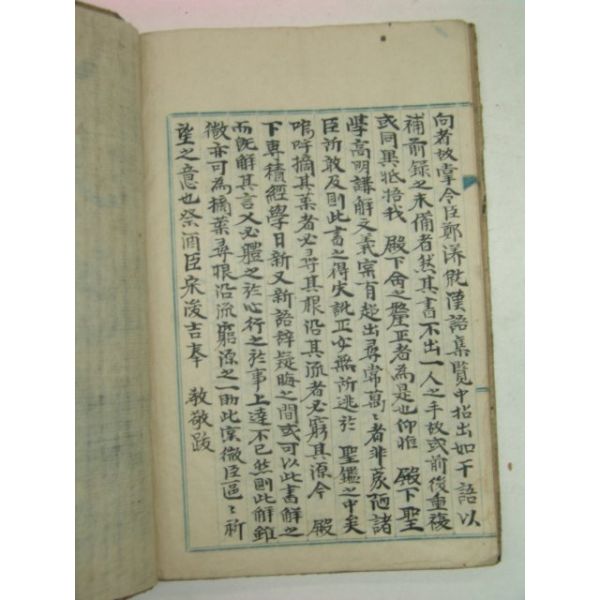 向者故掌令臣鄭瀁就漢語集覽中拈出如干語以
補前錄之未備者然其書不出一人之手故或前後重複
或同異牴捂我 殿下命之釐正者為是也仰惟 殿下聖
學高明講解之義實有超出尋常萬〻者非蒙陋諸
臣所敢及則此書之得失訛正安無所逃於 聖鑑之中矣
嗚呼摘其葉者必尋其根沿其流者必窮其源今 殿
下專積經學日新又新語辭疑晦之間或可以此書解之
而旣解其言又必體之於心行之於事上達不已然則此解雖
微亦可為摘葉尋根沿流窮源之一助此實微臣區〻祈
望之意也祭酒臣宋浚吉奉 敎敬跋